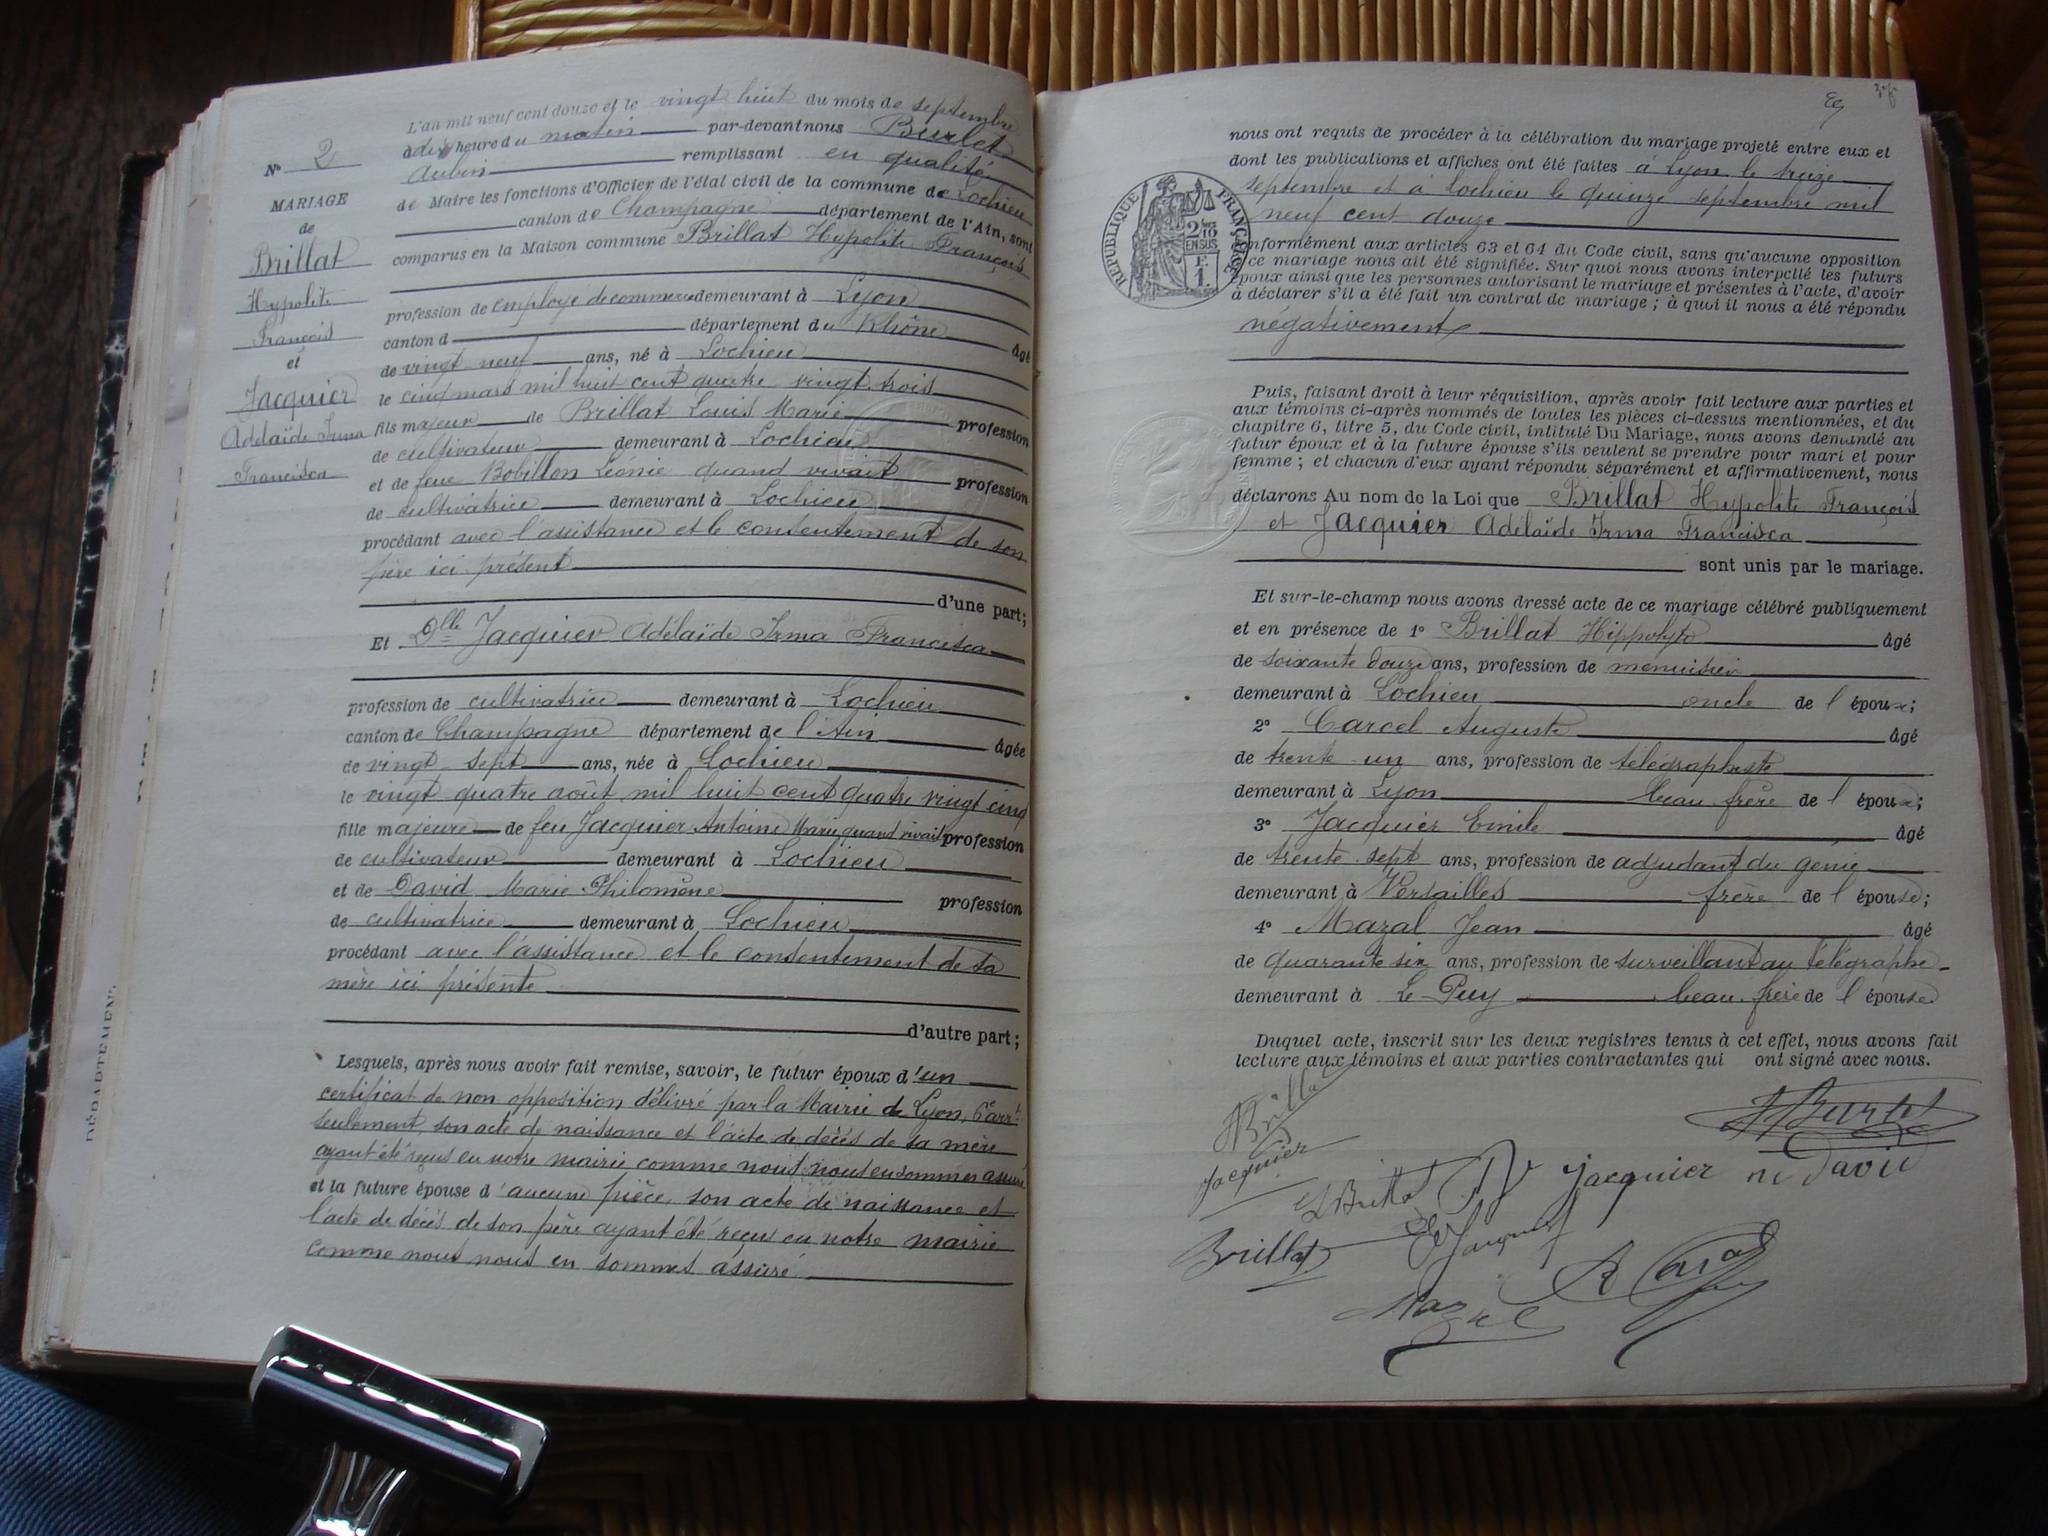 L'an mil neuf cent douze et le vingt huit du mois de septembre
à dix heure du matin par-devant nous Burlet
Aubin remplissant en qualité
de Maire les fonctions d'Officier de l'état civil de la commune de Lochieu
canton de Champagne département de l'Ain, sont
comparus en la Maison commune Brillat Hypolite François
profession de employé de commerce demeurant à Lyon
canton d département du Rhône âgé
de vingt neuf ans, né à Lochieu
le cinq mars mil huit cent quatre vingt trois
fils majeur de Brillat Louis Marie profession
de cultivateur demeurant à Lochieu
et de feue Bobillon Léonie quand vivait profession
de cultivatrice demeurant à Lochieu
procédant avec l'assistance et le consentement de son
père ici présent
d'une part;
Et Dlle Jacquier Adélaïde Irma Francisca
profession de cultivatrice demeurant à Lochieu
canton de Champagne département de l'Ain âgée
de vingt sept ans, née à Lochieu
le vingt quatre août mil huit cent quatre vingt cinq
fille majeure de feu Jacquier Antoine Marie quand vivait profession
de cultivateur demeurant à Lochieu
et de David Marie Philomène profession
de cultivatrice demeurant à Lochieu
procédant avec l'assistance et le consentement de sa
mère ici présente
d'autre part;
Lesquels, après nous avoir fait remise, savoir, le futur époux d'un
certificat de non opposition délivré par la Mairie de Lyon, 6e arrt
seulement, son acte de naissance et l'acte de décès de sa mère
ayant été reçus en notre mairie comme nous nous en sommes assuré
et la future épouse d'aucune pièce, son acte de naissance et
l'acte de décès de son père ayant été reçu en notre mairie
comme nous nous en sommes assuré
N° 2
MARIAGE
de
Brillat
Hypolite
François
et
Jacquier
Adelaïde Irma
Francisca
DÉPARTEMENT
nous ont requis de procéder à la célébration du mariage projeté entre eux et
dont les publications et affiches ont été faites à Lyon le treize
septembre et à Lochieu le quinze septembre mil
neuf cent douze
conformément aux articles 63 et 64 du Code civil, sans qu'aucune opposition
à ce mariage nous ait été signifiée. Sur quoi nous avons interpellé les futurs
époux ainsi que les personnes autorisant le mariage et présentes à l'acte, d'avoir
à déclarer s'il a été fait un contrat de mariage; à quoi il nous a été répondu
négativement
RÉPUBLIQUE FRANÇAISE
2/10
EN SUS
F.
1.
Puis, faisant droit à leur réquisition, après avoir fait lecture aux parties et
aux témoins ci-après nommés de toutes les pièces ci-dessus mentionnées, et du
chapitre 6, titre 5, du Code civil, intitulé Du Mariage, nous avons demandé au
futur époux et à la future épouse s'ils veulent se prendre pour mari et pour
femme; et chacun d'eux ayant répondu séparément et affirmativement, nous
déclarons Au nom de la Loi que Brillat Hypolite François
et Jacquier Adélaïde Irma Francisca
sont unis par le mariage.
Et sur-le-champ nous avons dressé acte de ce mariage célébré publiquement
et en présence de 1° Brillat Hippolyte âgé
de soixante douze ans, profession de menuisier
demeurant à Lochieu oncle de l époux;
2° Carcel Auguste âgé
de trente un ans, profession de télégraphiste
demeurant à Lyon beau frère de l époux;
3° Jacquier Emile âgé
de trente sept ans, profession de adjudant du génie
demeurant à Versailles frère de l épouse;
4° Mazal Jean âgé
de quarante six ans, profession de surveillant au télégraphe
demeurant à Le Puy beau frère de l épouse
Duquel acte, inscrit sur les deux registres tenus à cet effet, nous avons fait
lecture aux témoins et aux parties contractantes qui ont signé avec nous.
HBrillat
Burlet
Jacquier
LBrillat
Jacquier né David
Brillat
Jacquier
Mazal